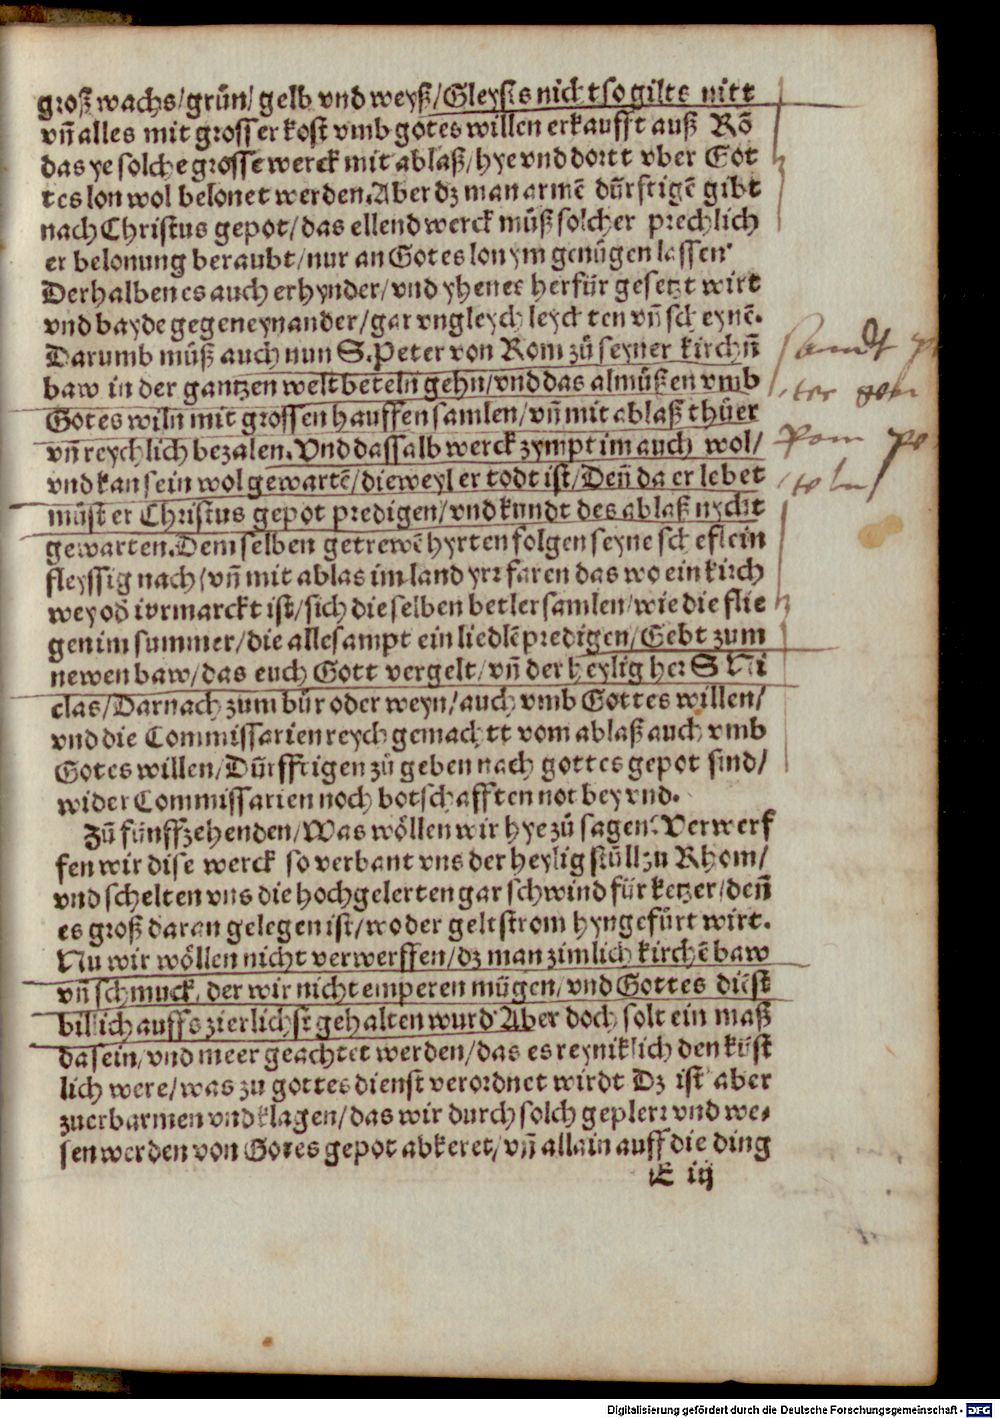 groß wachs/grůn/ gelb vnd weyß/Gleysts nicht so gilts nitt
vñ alles mit grosser kost vmb gotes willen erkaufft auß Rõ
das ye solche grosse werck mit ablaß/hye vnd dortt vber Got
tes lon wol belonet werden.Aber dz man armẽ důrftigẽ gibt
nach Christus gepot/das ellend werck můß solcher prechlich
er belonung beraubt/nur an Gotes lon ym genůgen lassen
Derhalben es auch erhynder/vnd yhenes herfür gesetzt wirt
vnd bayde gegeneynander/gar vngleych leychten vñ scheynẽ.
Darumb můß auch nun S.Peter von Rom zů seyner kirchñ
baw in der gantzen welt beteln gehn/vnd das almůßen vmb
Gotes wiln mit grossen hauffen samlen/vñ mit ablaß thůer
vñ reychlich bezalen.Vnd dassalb werck zympt im auch wol/
vnd kan sein wol gewartẽ/dieweyl er todt ist/Deñ da er lebet
můst er Christus gepot predigen/vnd kundt des ablaß nycht
gewarten.Dem selben getrewẽ hyrten folgen seyne scheflein
fleyssig nach/vñ mit ablas im land yrr faren das wo ein kirch
wey oď iormarckt ist/sich die selben betler samlen/wie die flie
gen im summer/die allesampt ein liedlẽ predigen/Gebt zum
newen baw/das euch Gott vergelt/vñ der heylig her S Ni
clas/Darnach zum bür oder weyn/auch vmb Gottes willen/
vnd die Commissarien reych gemachtt vom ablaß auch vmb
Gotes willen/Dürfftigen zů geben nach gottes gepot sind/
wider Commissarien noch botschafften not bey vnd.
Zů fünffzehenden/Was wöllen wir hye zů sagen? Verwerf
fen wir dise werck so verbant vns der heylig stůll zu Rhom/
vnd schelten vns die hochgelerten gar schwind für ketzer/deñ
es groß daran gelegen ist/wo der gelt strom hyngefürt wirt.
Nu wir wöllen nicht verwerffen/dz man zimlich kirchẽ baw
vñ schmuck, der wir nicht emperen mügen/vnd Gottes diẽst
billich auffs zierlichst gehalten wurd Aber doch solt ein maß
da sein/vnd meer geachtet werden/das es reyniklich den küst
lich were/was zu gottes dienst verordnet wirdt Dz ist aber
zuerbarmen vnd klagen/das wir durch solch geplerr vnd we⸗
sen werden von Gotes gepot abkeret/vñ allain auff die ding
E iij
Digitalisierung gefördert durch die Deutsche Forschungsgemeinschaft - DFG